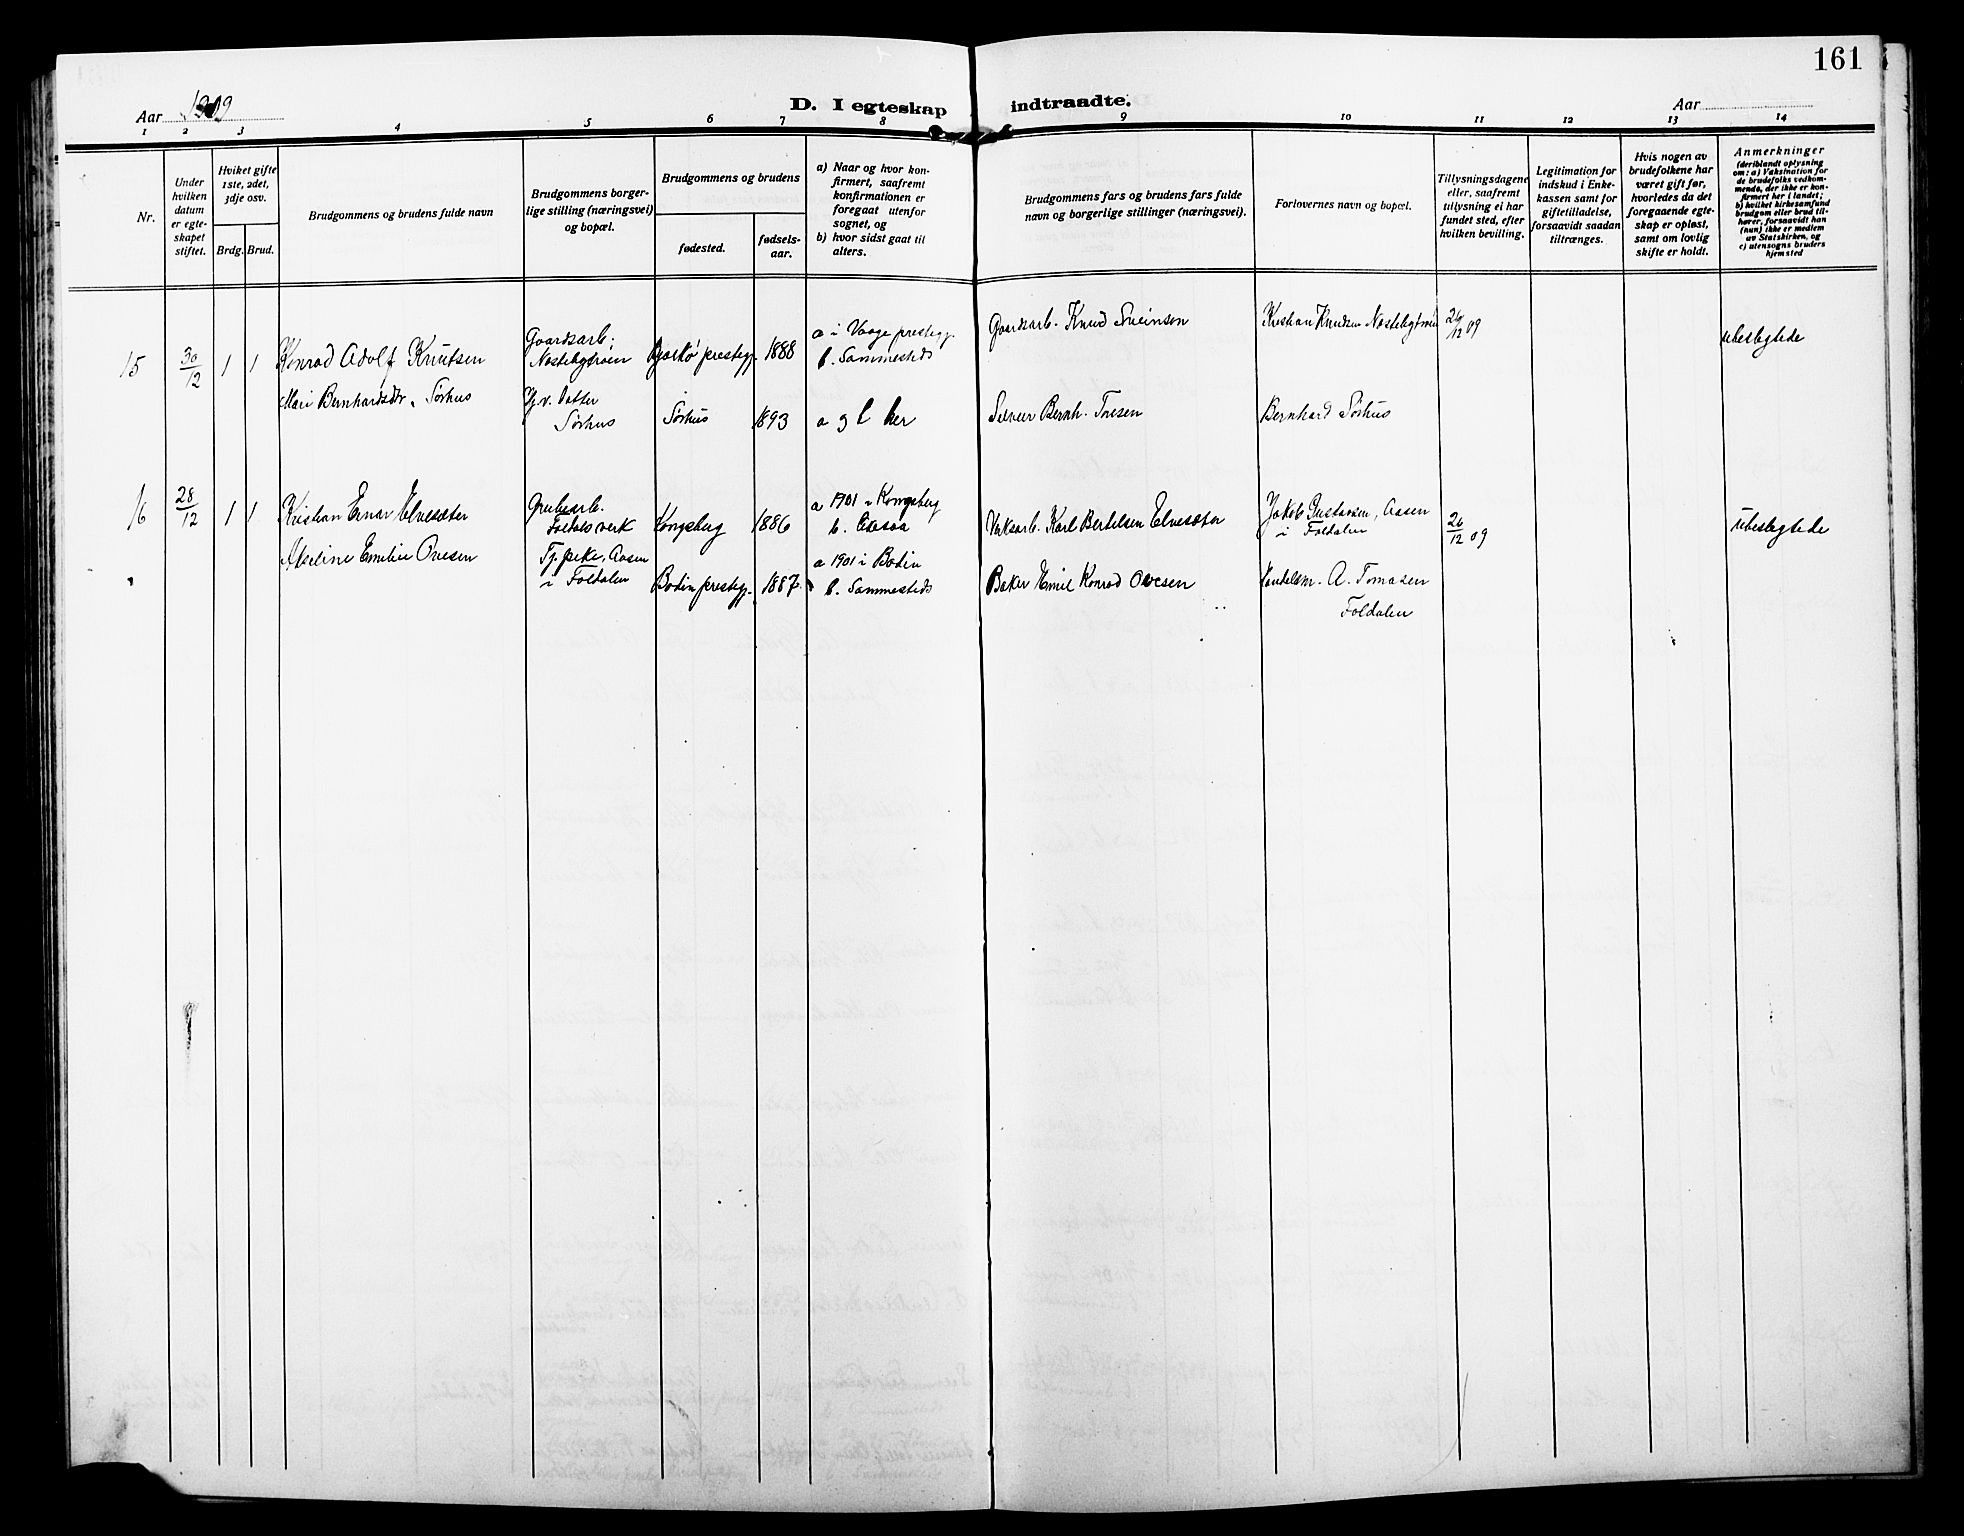 161
Aar 1909
D. I egteskap indtraadte.
Aar
1 2 3 4 5 6 7 8 9 10 11 12 13 14
Nr.
Under
hvilken
datum
er egte-
skapet
stiftet.
Hviket gifte
1ste, 2det,
3dje osv.
Brdg. Brud.
Brudgommens og brudens fulde navn
Brudgommens borger-
lige stilling (næringsvei)
og bopæl.
Brudgommens og brudens
fødested.
fødsels-
aar.
a) Naar og hvor kon-
firmert, saafremt
konfirmationen er
foregaat utenfor
sognet, og
b) hvor sidst gaat til
alters.
Brudgommens fars og brudens fars fulde
navn og borgerlige stillinger (næringsvei).
Forlovernes navn og bopæl.
Tillysningsdagene
eller, saafremt
tillysning ei har
fundet sted, efter
hvilken bevilling.
Legitimation for
indskud i Enke-
kassen samt for
giftetilladelse,
forsaavidt saadan
tiltrænges.
Hvis nogen av
brudefolkene har
været gift før,
hvorledes da det
foregaaende egte-
skap er opløst,
samt om lovlig
skifte er holdt.
Anmerkninger
(deriblandt oplysning
om: a) Vaksination for
de brudefolks vedkom-
mende, der ikke er kon-
firmert her i landet;
b) hvilket kirkesamfund
brudgom eller brud til-
hører, forsaavidt han
(hun) ikke er medlem
av Statskirken, og
c) utensogns bruders
hjemsted
15 30/12 1 1
Konrad Adolf Knutsen
Gaardsarb.
prestegj. 1888
a i Vaage prestegj.
b. Sammesteds
Gaardsarb. Knud Sveinsen
Kristian Knudsen
26/12 09
ubeslegtede
Mari Bernhardsdtr. Sørhus
Gj. v. Datter
Sørhus
Sørhus 1893
a og b her
Bernh. Toresen
Bernhard Sørhus
16 28/12 1 1
Kristian Einar Elvesæter
Grubearb.
Foldals verk
Kongsberg 1886
a 1901 i Kongsberg
b.
Verksarb. Karl Bertelsen Elvesæter
Jakob Gustavsen, Aasen
i Foldalen
26/12 09
ubeslegtede
Emilie Ovesen
Tj. pike, Aasen
i Foldalen
Bodin prestegj. 1887
a 1901 i Bodin
b. Sammesteds
Baker Emil Konrad Ovesen
Handelsm. A. Tomasen
Foldalen